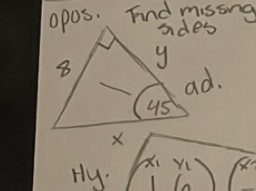 opos. Find missing
sides
8
y
ad.
45
x
Hy.
x₁ y₁